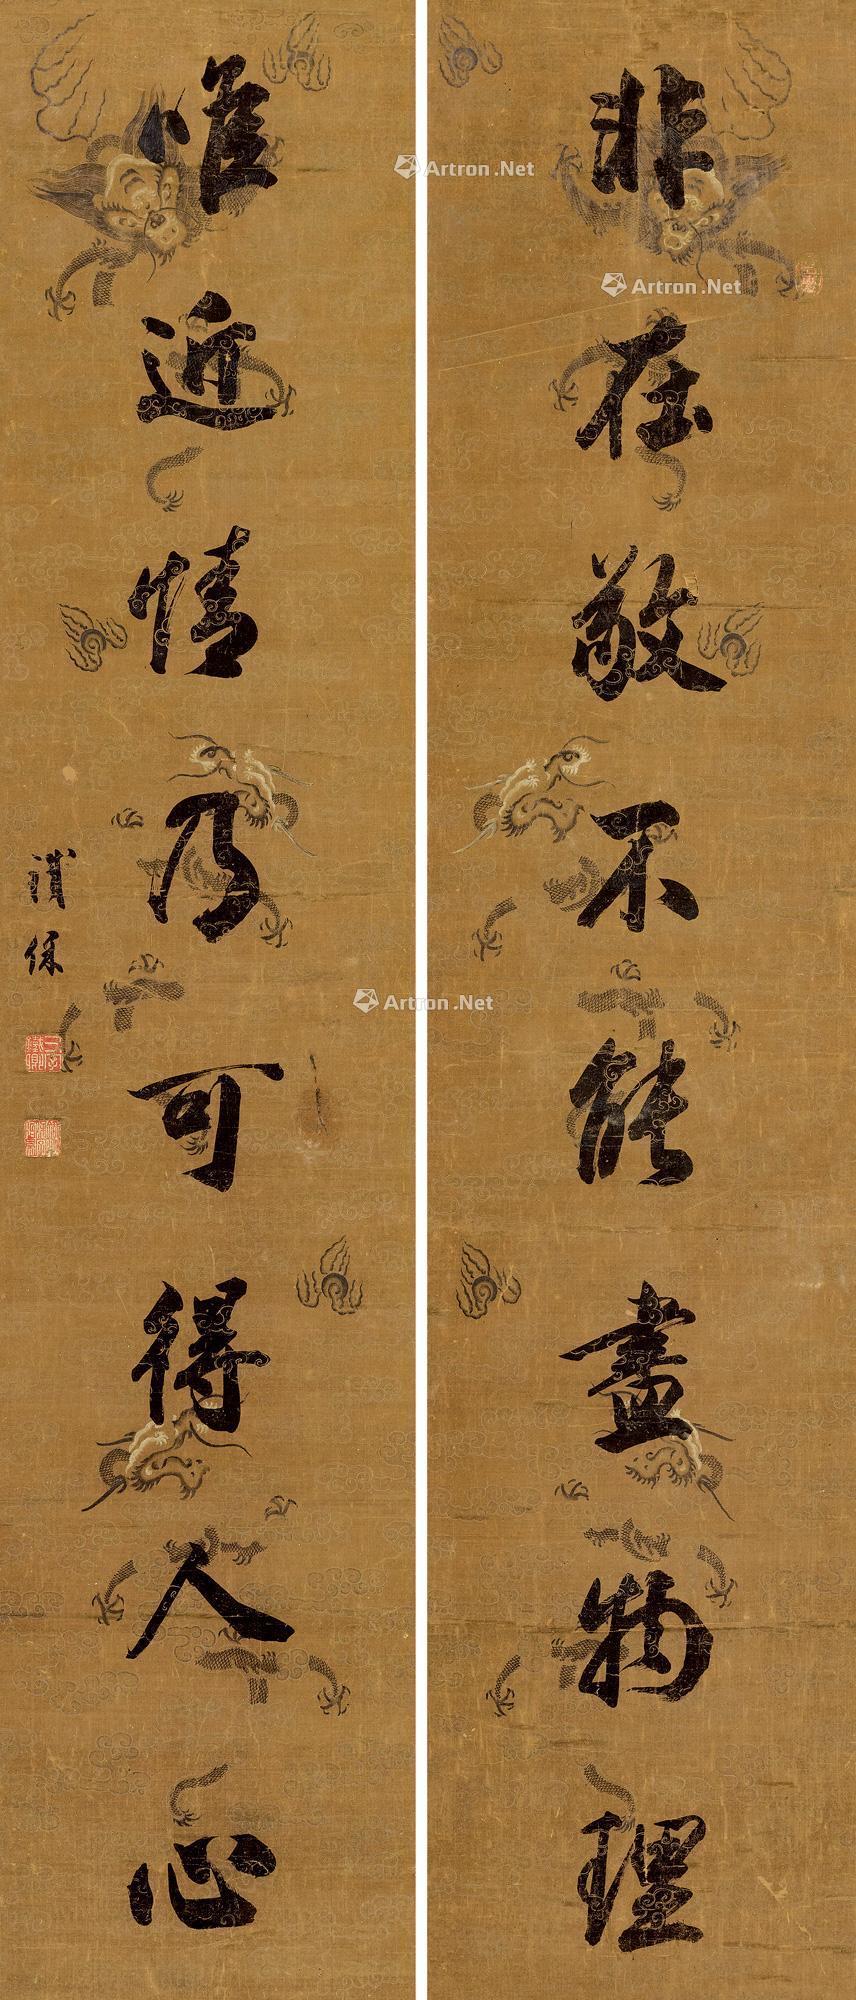 非在敬不能盡物理
惟近情乃可得人心
Artron.Net
Artron.Net
Artron.Net